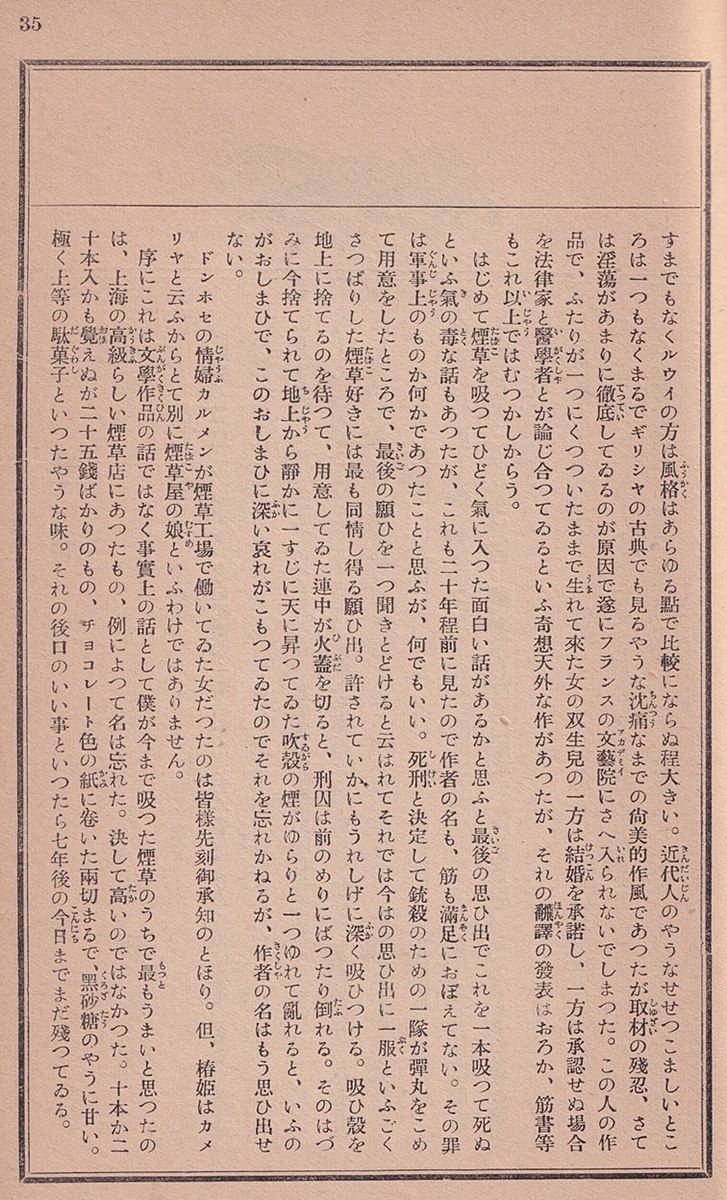 35
すまでもなくルウイの方は風格はあらゆる點で比較にならぬ程大きい。近代人のやうなせせつこましいとこ
ろは一つもなくまるでギリシヤの古典でも見るやうな沈痛なまでの尙美的作風であつたが取材の殘忍、さて
は淫蕩があまりに徹底してゐるのが原因で遂にフランスの文藝院にさへ入られないでしまつた。この人の作
品で、ふたりが一つにくつついたままで生れて來た女の双生兒の一方は結婚を承諾し、一方は承認せぬ場合
を法律家と醫學者とが論じ合つてゐるといふ奇想天外な作があつたが、それの飜譯の發表はおろか、筋書等
もこれ以上ではむつかしからう。
はじめて煙草を吸つてひどく氣に入つた面白い話があるかと思ふと最後の思ひ出でこれを一本吸つて死ぬ
といふ氣の毒な話もあつたが、これも二十年程前に見たので作者の名も、筋も滿足におぼえてない。その罪
は軍事上のものか何かであつたことと思ふが、何でもいい。死刑と決定して銃殺のための一隊が彈丸をこめ
て用意をしたところで、最後の願ひを一つ聞きとどけると云はれてそれでは今はの思ひ出に一服といふごく
さつぱりした煙草好きには最も同情し得る願ひ出。許されていかにもうれしげに深く吸ひつける。吸ひ殼を
地上に捨てるのを待つて、用意してゐた連中が火蓋を切ると、刑囚は前のめりにばつたり倒れる。そのはづ
みに今捨てられて地上から靜かに一すじに天に昇つてゐた吹殼の煙がゆらりと一つゆれて亂れると、いふの
がおしまひで、このおしまひに深い哀れがこもつてゐたのでそれを忘れかねるが、作者の名はもう思ひ出せ
ない。
ドンホセの情婦カルメンが煙草工場で働いてゐた女だつたのは皆樣先刻御承知のとほり。但、椿姬はカメ
リヤと云ふからとて別に煙草屋の娘といふわけではありません。
序にこれは文學作品の話ではなく事實上の話として僕が今まで吸つた煙草のうちで最もうまいと思つたの
は、上海の高級らしい煙草店にあつたもの、例によつて名は忘れた。決して高いのではなかつた。十本か二
十本入かも覺えぬが二十五錢ばかりのもの、チョコレート色の紙に卷いた兩切まるで、黑砂糖のやうに甘い。
極く上等の駄菓子といつたやうな味。それの後口のいい事といつたら七年後の今日までまだ殘つてゐる。